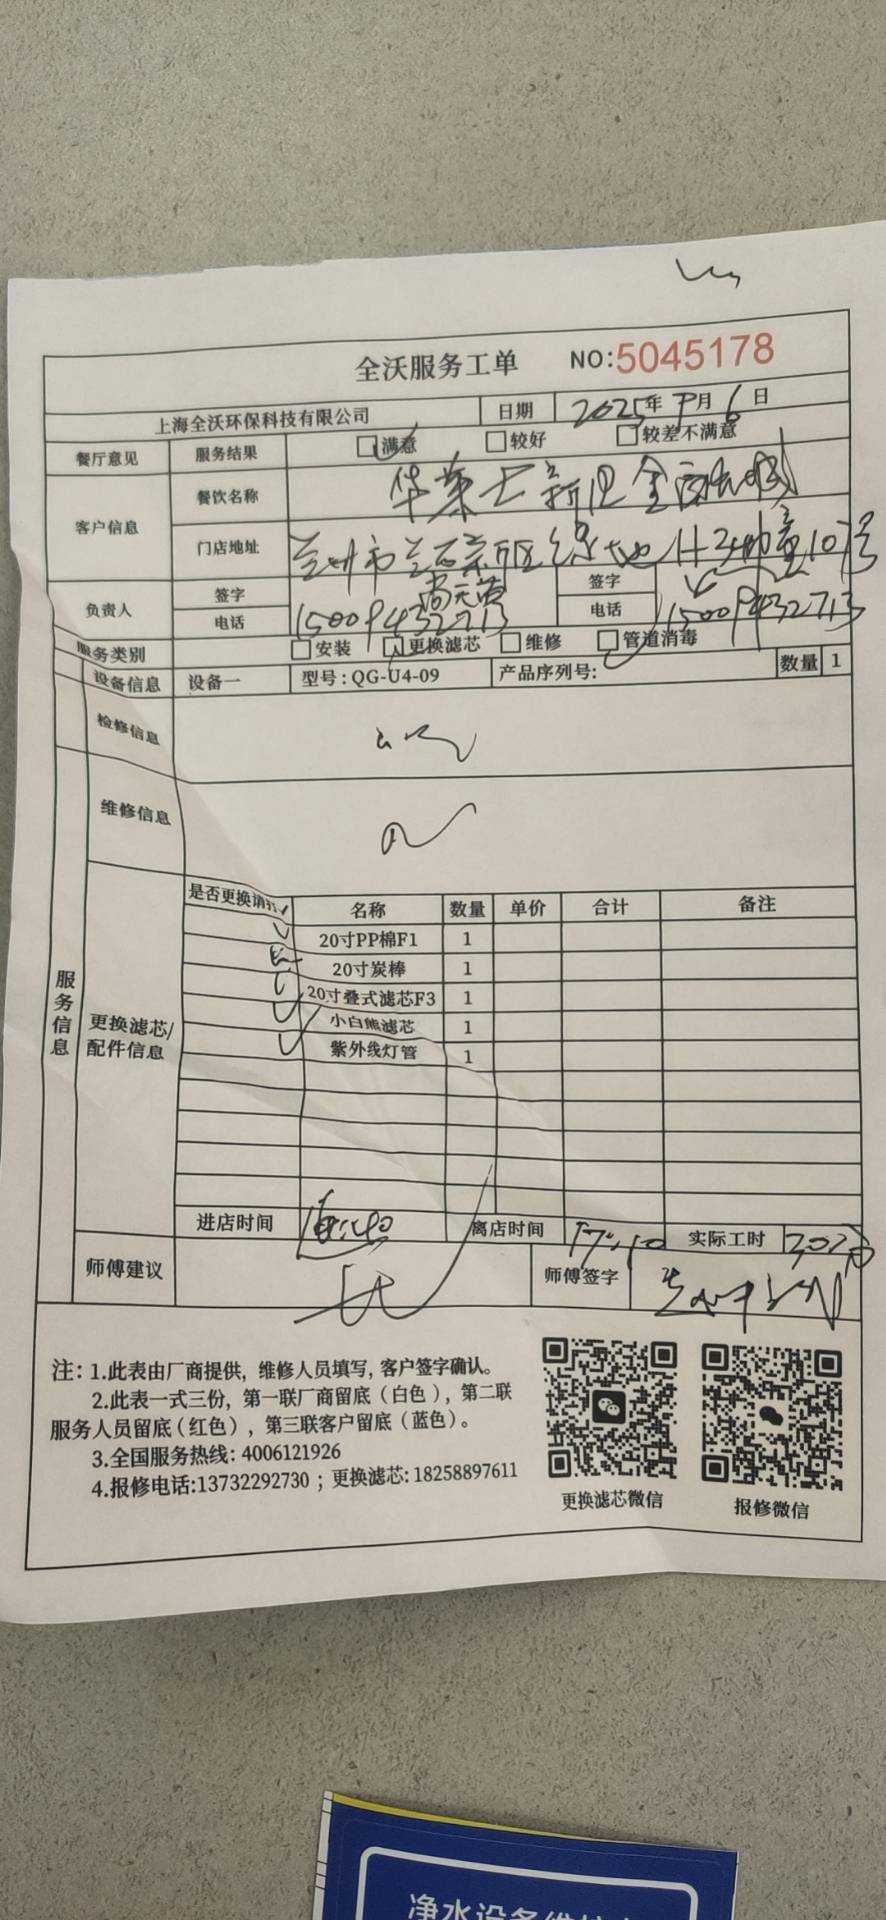 全沃服务工单 NO:5045178
上海全沃环保科技有限公司 日期 2025年 月6日
餐厅意见 服务结果 满意 较好 较差不满意
客户信息 餐饮名称 华莱士新区金
门店地址 兰州市兰石新区绿地 107号
负责人 签字 尚天 签字
电话 15009432713 电话 15009432713
服务类别 安装 更换滤芯 维修 管道消毒
设备信息 设备一 型号:QG-U4-09 产品序列号: 数量 1
检修信息
维修信息
服务信息
更换滤芯/配件信息
是否更换请打✓ 名称 数量 单价 合计 备注
20寸PP棉F1 1
20寸炭棒 1
20寸叠式滤芯F3 1
小白熊滤芯 1
紫外线灯管 1
进店时间 离店时间 17:10 实际工时
师傅建议 师傅签字
注: 1.此表由厂商提供, 维修人员填写, 客户签字确认。
2.此表一式三份, 第一联厂商留底(白色), 第二联
服务人员留底(红色), 第三联客户留底(蓝色)。
3.全国服务热线: 4006121926
4.报修电话:13732292730 ; 更换滤芯: 18258897611
更换滤芯微信 报修微信
净水设备维护